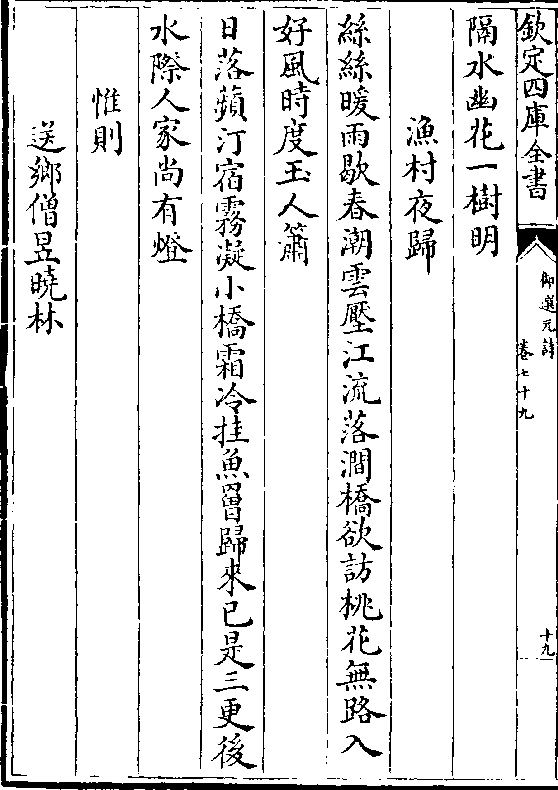 欽定四庫全書
御選元詩
卷七十九
十九
隔水幽花一樹明
漁村夜歸
絲絲暖雨歇春潮雲壓江流落澗橋欲訪桃花無路入
好風時度玉人簫
日落蘋汀宿霧凝小橋霜冷挂魚罾歸來已是三更後
水際人家尚有燈
惟則
送鄉僧昱曉林